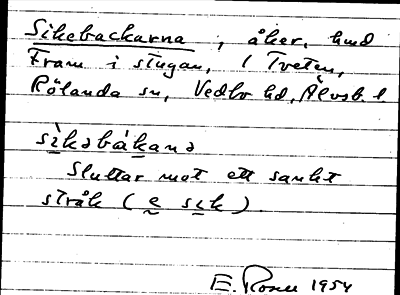 Sikebackarna, åker, hmd
Fram i stugan, 1 Tveten,
Rölanda sn, Vedbo hd, Älvsb. l.
sìkəbákana
Sluttar mot ett sankt
stråk (e sik).
E. Rosell 1954